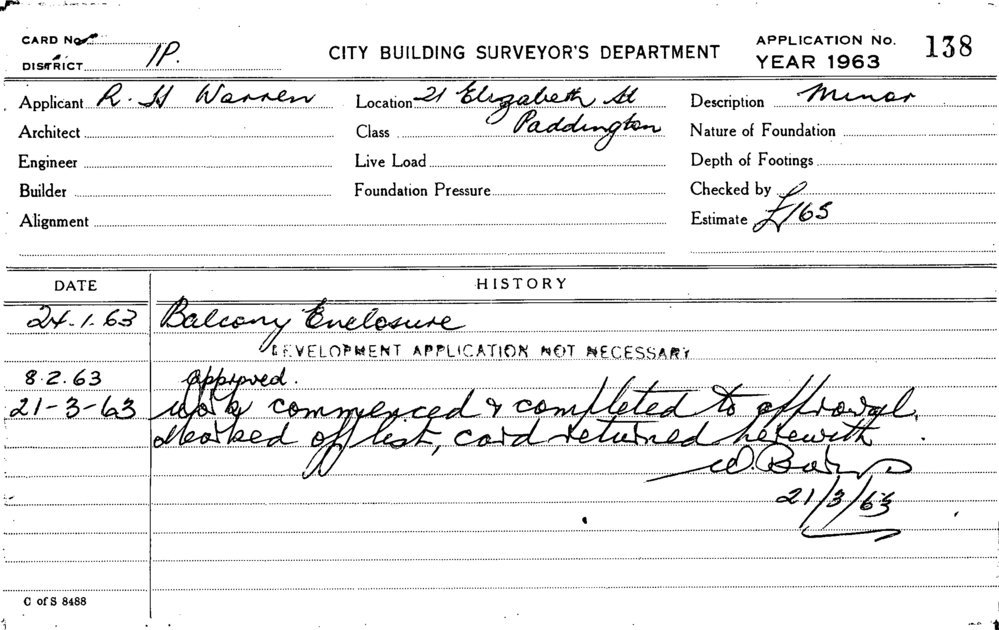 CARD No
DISTRICT IP.
CITY BUILDING SURVEYOR'S DEPARTMENT
APPLICATION No. 138
YEAR 1963
Applicant R. H Warren
Location 21 Elizabeth St
Paddington
Description Minor
Architect
Class
Nature of Foundation
Engineer
Live Load
Depth of Footings
Builder
Foundation Pressure
Checked by
Alignment
Estimate £165
DATE HISTORY
24.1.63 Balcony Enclosure
DEVELOPMENT APPLICATION NOT NECESSARY
8.2.63 approved.
21-3-63 Work commenced & completed to approval,
Marked off list, card returned herewith.
W.
21/3/63
C of S 8488